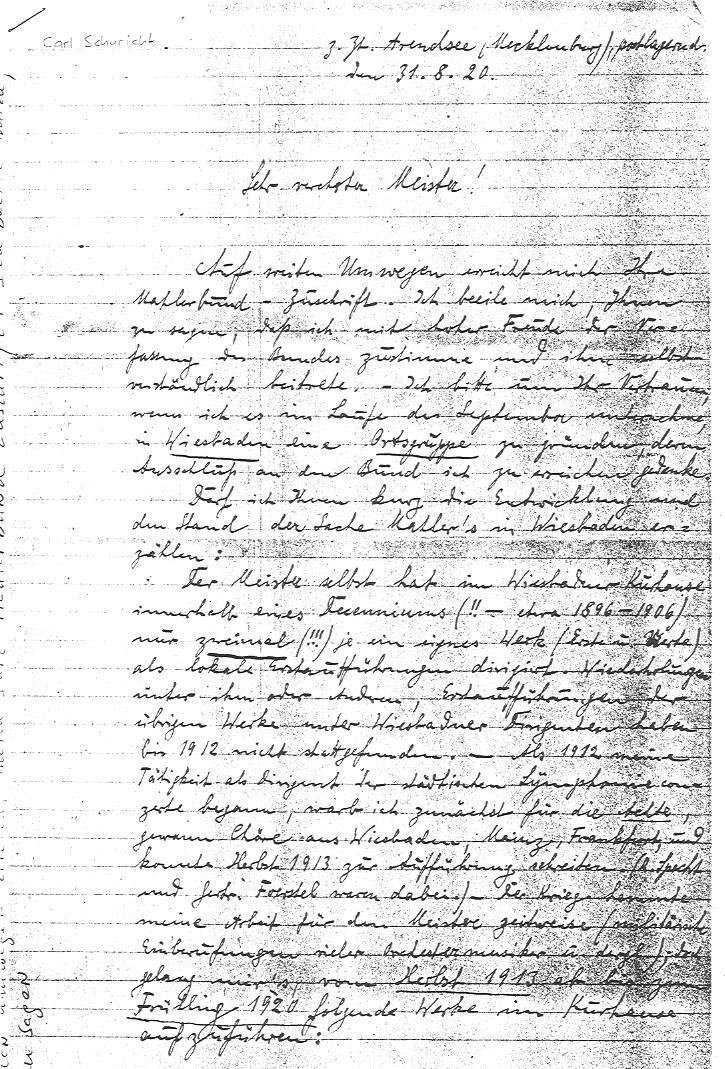 Carl Schuricht.
z. Zt. Arendsee (Mecklenburg), postlagernd.
den 31.8.20.
Sehr verehrter Meister!
Auf weiten Umwegen erreicht mich Ihre
Mahlerbund - Zuschrift. Ich beeile mich, Ihnen
zu sagen, daß ich mit hoher Freude der Ver=
fassung des Bundes zustimme und ihm selbst
verständlich beitrete. - Ich bitte um Ihr Vertrauen,
wenn ich es im Laufe des September unternehme,
in Wiesbaden eine Ortsgruppe zu gründen, deren
Anschluß an den Bund ich zu erreichen gedenke.
Darf ich Ihnen kurz die Entwicklung und
den Stand der Sache Mahler's in Wiesbaden er=
zählen:
Der Meister selbst hat im Wiesbadner Kurhause
innerhalb eines Decenniums (!! - etwa 1896-1906)
nur zweimal (!!!) je ein eignes Werk (Erste u. Vierte)
als lokale Erstaufführungen dirigirt. Wiederholungen
unter ihm oder Andren, Erstaufführungen der
übrigen Werke unter Wiesbadner Dirigenten haben
bis 1912 nicht stattgefunden. - Als 1912 meine
Tätigkeit als Dirigent der städtischen Symphoniecon=
zerte begann, warb ich zunächst für die Achte,
gewann Chöre aus Wiesbaden, Mainz, Frankfurt, und
konnte Herbst 1913 zur Aufführung schreiten. (R. Specht
und Gertr. Foerstel waren dabei.) - Der Krieg hemmte
meine Arbeit für den Meister zeitweise (militärische
Einberufungen vieler Orchestermusiker u. dergl.); doch
gelang mir's, vom Herbst 1913 ab bis zum
Frühling 1920 folgende Werke im Kurhause
aufzuführen:
sagen